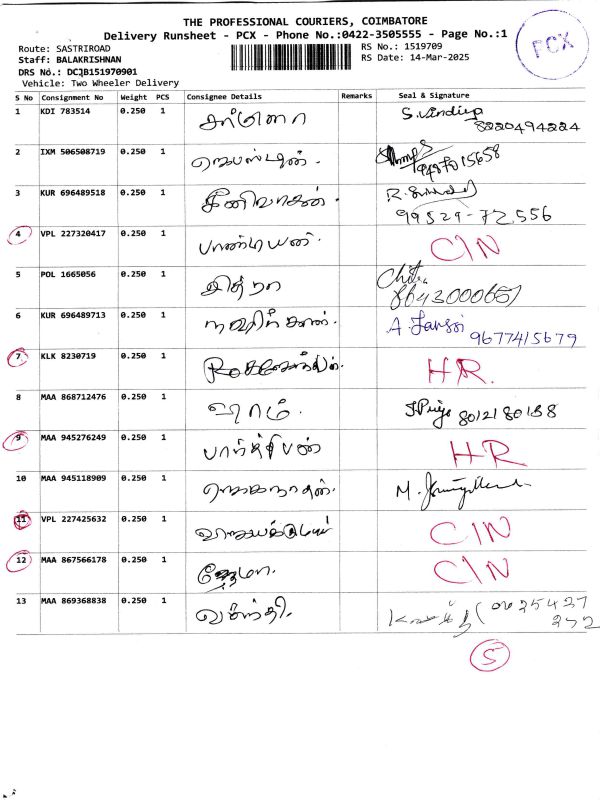 THE PROFESSIONAL COURIERS, COIMBATORE
Delivery Runsheet - PCX - Phone No.:0422-3505555 - Page No.:1
PCX
Route: SASTRIROAD
RS No.: 1519709
Staff: BALAKRISHNAN
RS Date: 14-Mar-2025
DRS No.: DCJB151970901
Vehicle: Two Wheeler Delivery
S No Consignment No Weight PCS Consignee Details Remarks Seal & Signature
1 KDI 783514 0.250 1
8220494224
2 IXM 506508719 0.250 1
9487015658
3 KUR 696489518 0.250 1 சீனிவாசன்.
99529-72556
4 VPL 227320417 0.250 1 பாண்டியன். C/N
5 POL 1665056 0.250 1 சித்ரா
8643000657
6 KUR 696489713 0.250 1 A. Jansi
9677415679
7 KLK 8230719 0.250 1 HR.
8 MAA 868712476 0.250 1 ஶ்ராம். J.Priya 8012180188
9 MAA 945276249 0.250 1 பார்த்திபன் HR
10 MAA 945118909 0.250 1 ஜெகநாதன்.
11 VPL 227425632 0.250 1 C/N
12 MAA 867566178 0.250 1 ஹேமா. C/N
13 MAA 869368838 0.250 1 வசந்தி.
5